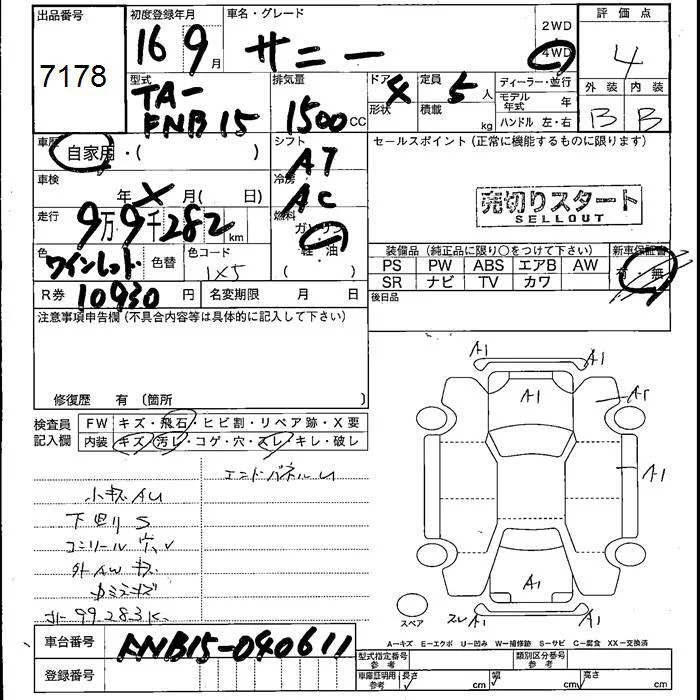 出品番号
7178
初度登録年月
16 9月
車名・グレード
サニー
2WD
4WD
評価点
4
外装 内装
B B
型式
TA-
FNB15
排気量
1500CC
ドア形状
4
定員
5人
積載
kg
ディーラー・並行
モデル年式 年
ハンドル 左・右
車歴
自家用・( )
シフト
AT
セールスポイント(正常に機能するものに限ります)
車検
年 X 月( 日)
冷房
AC
売切りスタート
SELLOUT
走行
9万9千282km
燃料
ガソリン
軽・油
( )
色
ワインレッド
色替
色コード
1X5
装備品(純正品に限り○をつけて下さい)
新車保証書
PS PW ABS エアB AW
有・無
SR ナビ TV カワ
R券 10930円
名変期限 月 日
後日品
注意事項申告欄(不具合内容等は具体的に記入して下さい)
修復歴 有〔箇所 〕
検査員記入欄
FW キズ・飛石・ヒビ割・リペア跡・X要
内装 キズ・汚レ・コゲ・穴・スレ・キレ・破レ
エンドパネルU
小キズAU
下回りS
外AWキズ
A1
A1
A1
A1
A1
スレ A1
A1
スペア
A-キズ E-エクボ U-凹み W-補修跡 S-サビ C-腐食 XX-交換済
車台番号
FNB15-040611
登録番号
型式指定番号
参考
類別区分番号
参考
車庫証明用
参考
長さ cm
幅 cm
高さ cm